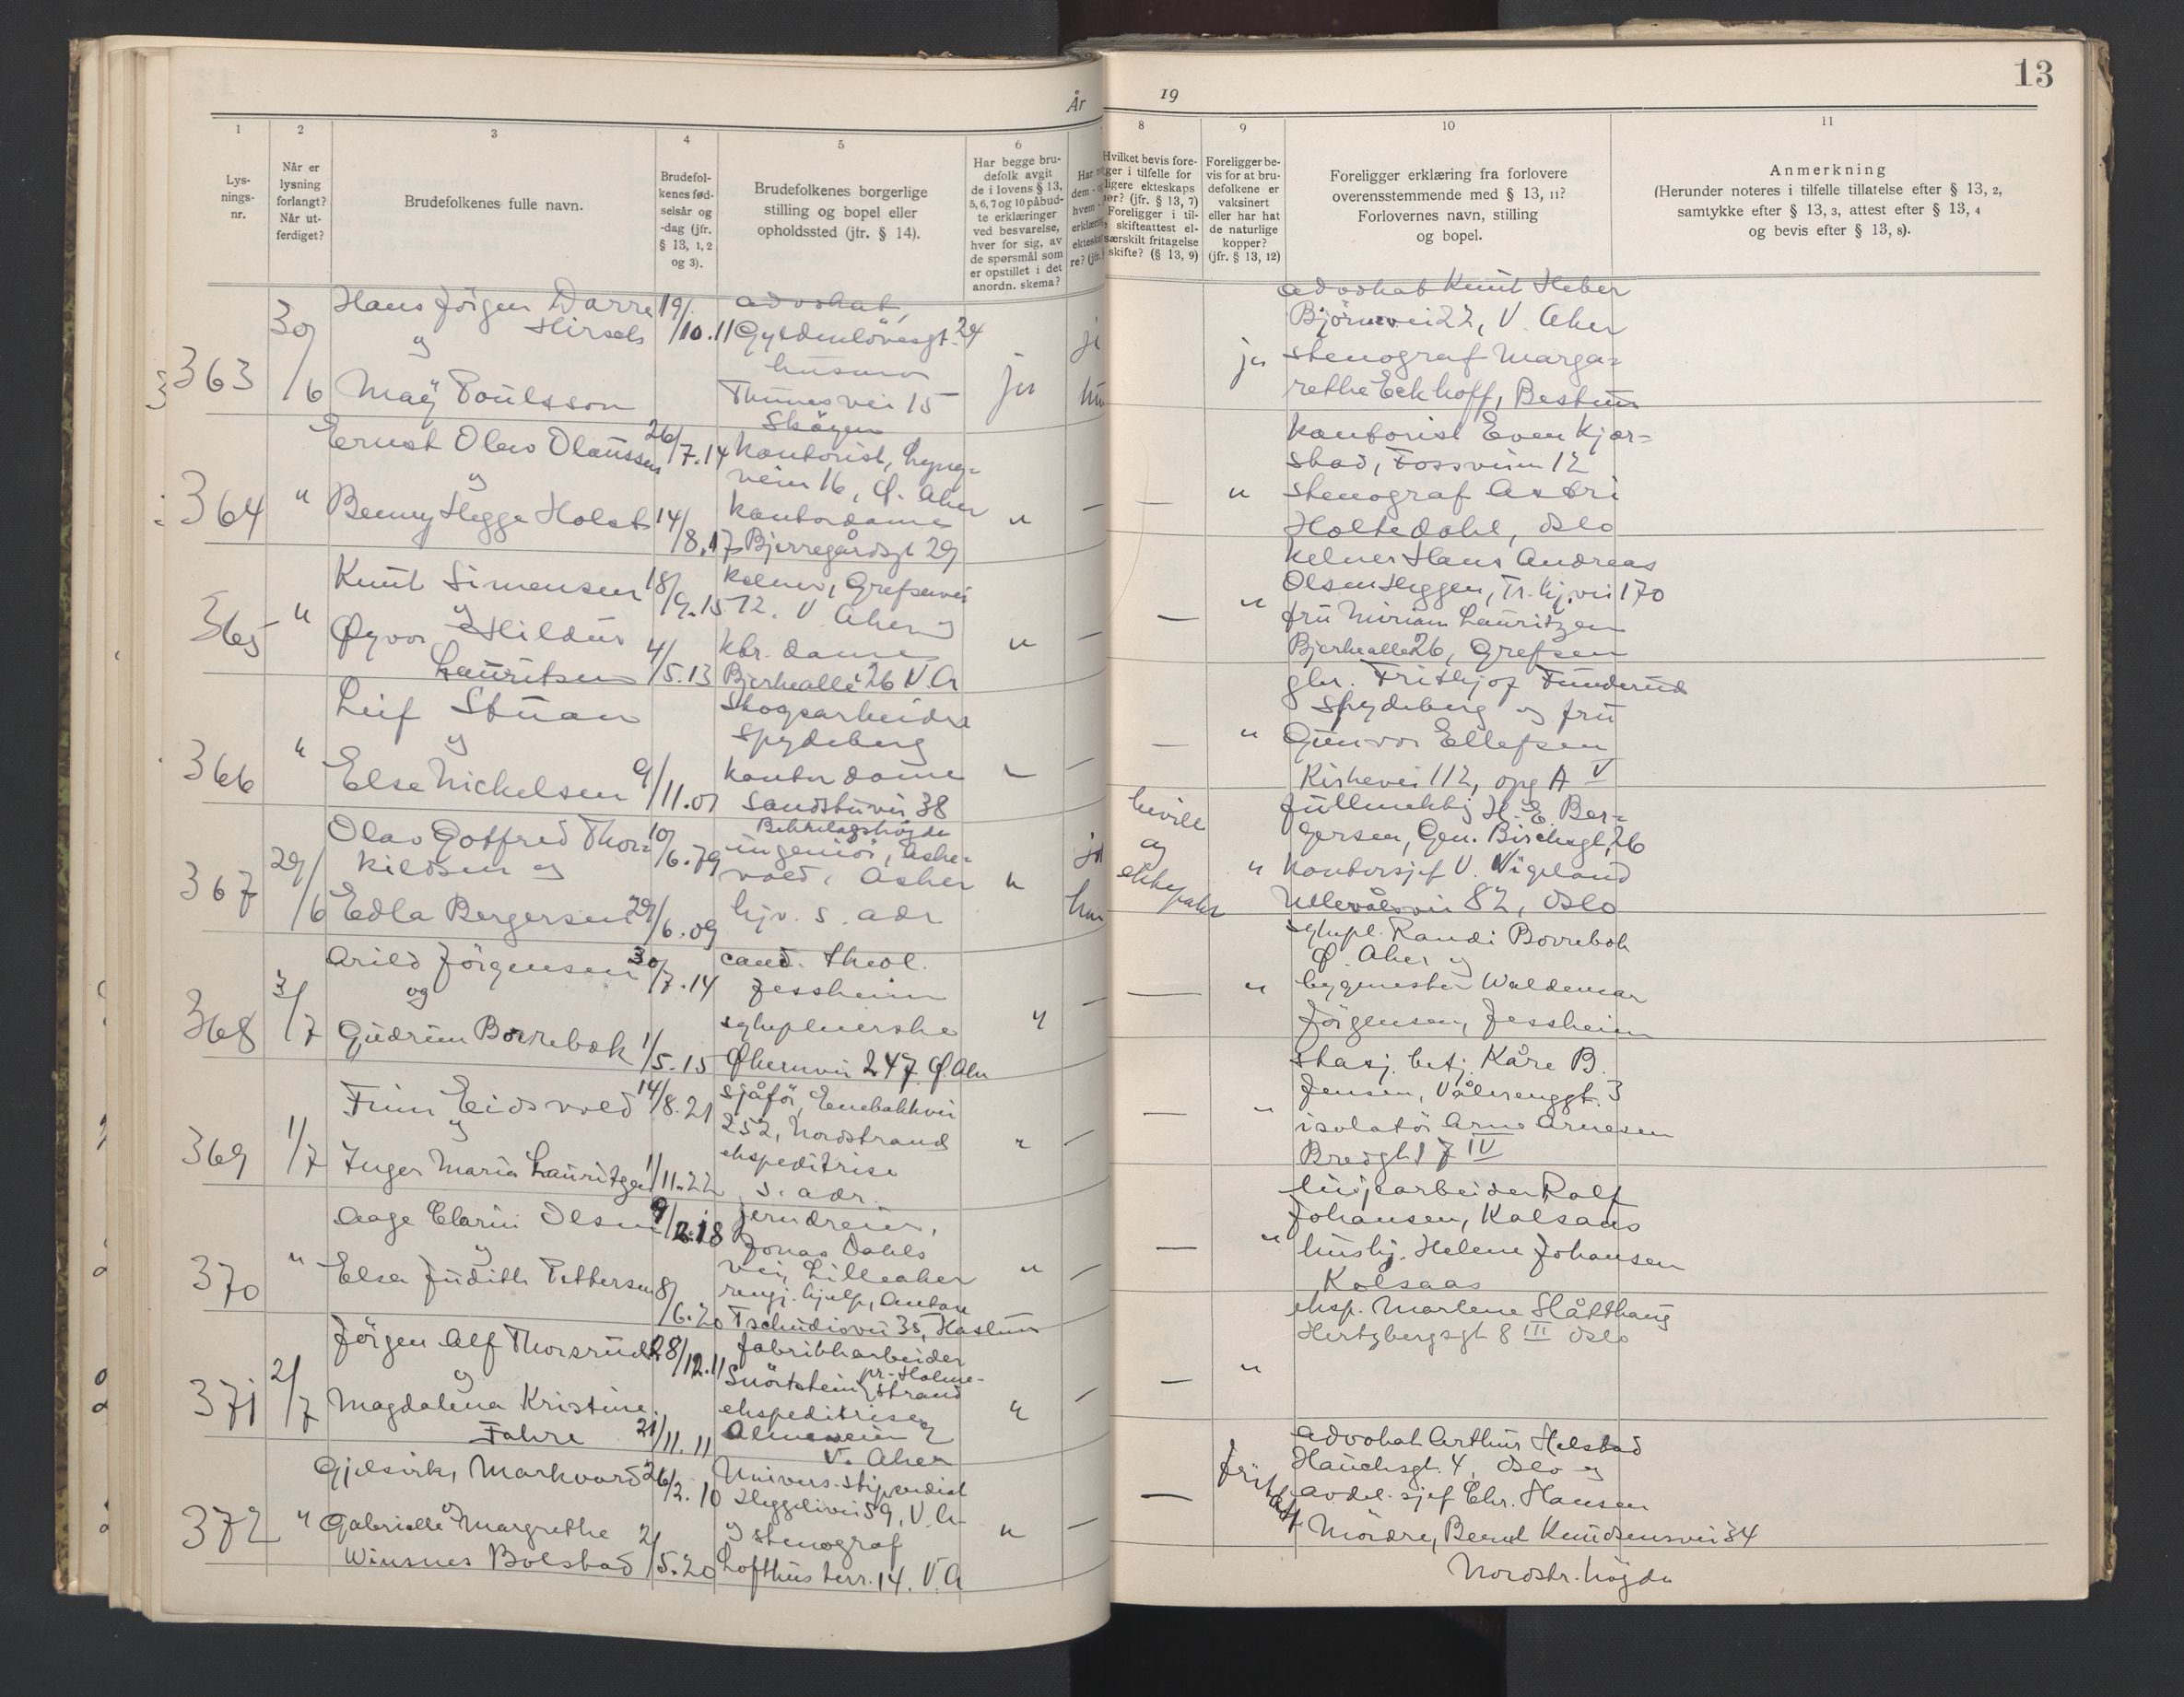 13
År 19
1 2 3 4 5 6 8 9 10 11
Lys-
nings-
nr.
Når er
lysning
forlangt?
Når ut-
ferdiget?
Brudefolkenes fulle navn.
Brudefol-
kenes fød-
selsår og
-dag (jfr.
§ 13, 1, 2
og 3).
Brudefolkenes borgerlige
stilling og bopel eller
opholdssted (jfr. § 14).
Har begge bru-
defolk avgit
de i lovens § 13,
5, 6, 7 og 10 påbud-
te erklæringer
ved besvarelse,
hver for sig, av
de spørsmål som
er opstillet i det
anordn. skema?
Hvilket bevis fore-
ger i tilfelle for
ligere ekteskaps
ør? (jfr. § 13, 7)
Foreligger i til-
skifteattest el-
særskilt fritagelse
skifte? (§ 13, 9)
Foreligger be-
vis for at bru-
defolkene er
vaksinert
eller har hat
de naturlige
kopper?
(jfr. § 13, 12)
Foreligger erklæring fra forlovere
overensstemmende med § 13, 11?
Forlovernes navn, stilling
og bopel.
Anmerkning
(Herunder noteres i tilfelle tillatelse efter § 13, 2,
samtykke efter § 13, 3, attest efter § 13, 4
og bevis efter § 13, 8).
363
30/6
Hans Jörgen Darre
Hirsch
og
May Poulsson
19/10.11
advokat,
Gyldenlövesgt. 24
Thunes vei 15
Sköyen
ja
ja
advokat Knut Heber
Björnvei 22, V. Aker
stenograf Marga=
rethe Eckhoff, Bestum
364
"
Ernst Olav Olaussen
og
Benny Hegge Holst
26/7.14
14/8.17
kontorist, Lyng-
veien 16, Ø. Aker
kontordame
Bjerregårdsgt 29
"
—
—
"
kontorist Even Kjær=
stad, Fossveien 12
stenograf Astri
Holtedahl, Oslo
365
"
Knut Simensen
og
Øyvor Hildur
Lauritsen
18/9.15
4/5.13
kelner, Grefsenvei
72. V. Aker og
ktr. dame
Bjerkeallé 26 V. A
"
—
—
"
kelner Hans Andreas
Olsen Heggen, Tr. hj. vei 170
fru Miriam Lauritzen
Bjerkealle 26, Grefsen
366
"
Leif Stuan
og
Else Nickelsen
9/11.07
Skogsarbeider
Spydeberg
kontordame
Sandstuvei 38
Bekkelagshøgda
—
—
"
gbr. Frithjof Funderud
Spydeberg og fru
Gunvor Ellefsen
Kirkevei 112, opg A V
367
29/6
Olav Gotfred Thor=
kildsen og
Edla Bergersen
10/6.79
29/6.09
ingeniör, Aske=
vold, Asker
hjv. s. adr
"
bevill
og
"
fullmektig H. E. Ber-
gersen, Gen. Birchsgt. 26
kontorsjef V. Nigeland
Ullevålsvei 82, Oslo
368
3/7
Arild Jörgensen
og
Gudrun Borrebæk
30/7.14
1/5.15
cand. theol.
Jessheim
sykepleierske
Økernvei 247 Ø. Aker
"
—
—
"
sykepl. Randi Borrebæk
Ø. Aker og
bygmester Waldemar
Jörgensen, Jessheim
369
1/7
Finn Eidsvold
og
Inger Maria Lauritzen
14/8.21
1/11.22
sjåfør, Enebakkvei
252, Nordstrand
ekspeditrise
s. adr.
"
—
—
"
stasj. betj. Kåre B.
Jensen, Vålerenggt. 3
isolatör Arne Arnesen
Bredgt 17 IV
370
"
Aage Clarin Olsen
og
Elsa Judith Pettersen
8/6.20
jerndreier,
Jonas Dahls
vei, Lilleaker
rengj. hjelp, Anton
Tschudisvei 35, Haslum
"
—
—
"
linjearbeider Rolf
Johansen, Kolsaas
hushj. Helene Johansen
Kolsaas
371
2/7
Jörgen Alf Thorsrud
og
Magdalena Kristine
Fahre
28/12.11
21/11.11
fabrikkarbeider
Snörtstein pr. Holme-
strand
ekspeditrise
Almeveien 2
V. Aker
"
—
—
"
eksp. Marlene Slåtthaug
Hertzbergsgt 8 III Oslo
372
"
Gjelsvik, Markvard
og
Gabrielle Margrethe
Winsnes Bolstad
26/2.10
2/5.20
Univers. stipendiat
Heggelivei 59, V. A.
og stenograf
Lofthus terr. 14. V. A
"
—
—
fritatt
advokat Arthur Helstad
Hauchsgt. 4, Oslo og
avdel. sjef Chr. Hansen
Mördre, Bernt Knudsensvei 34
Nordstr. högda